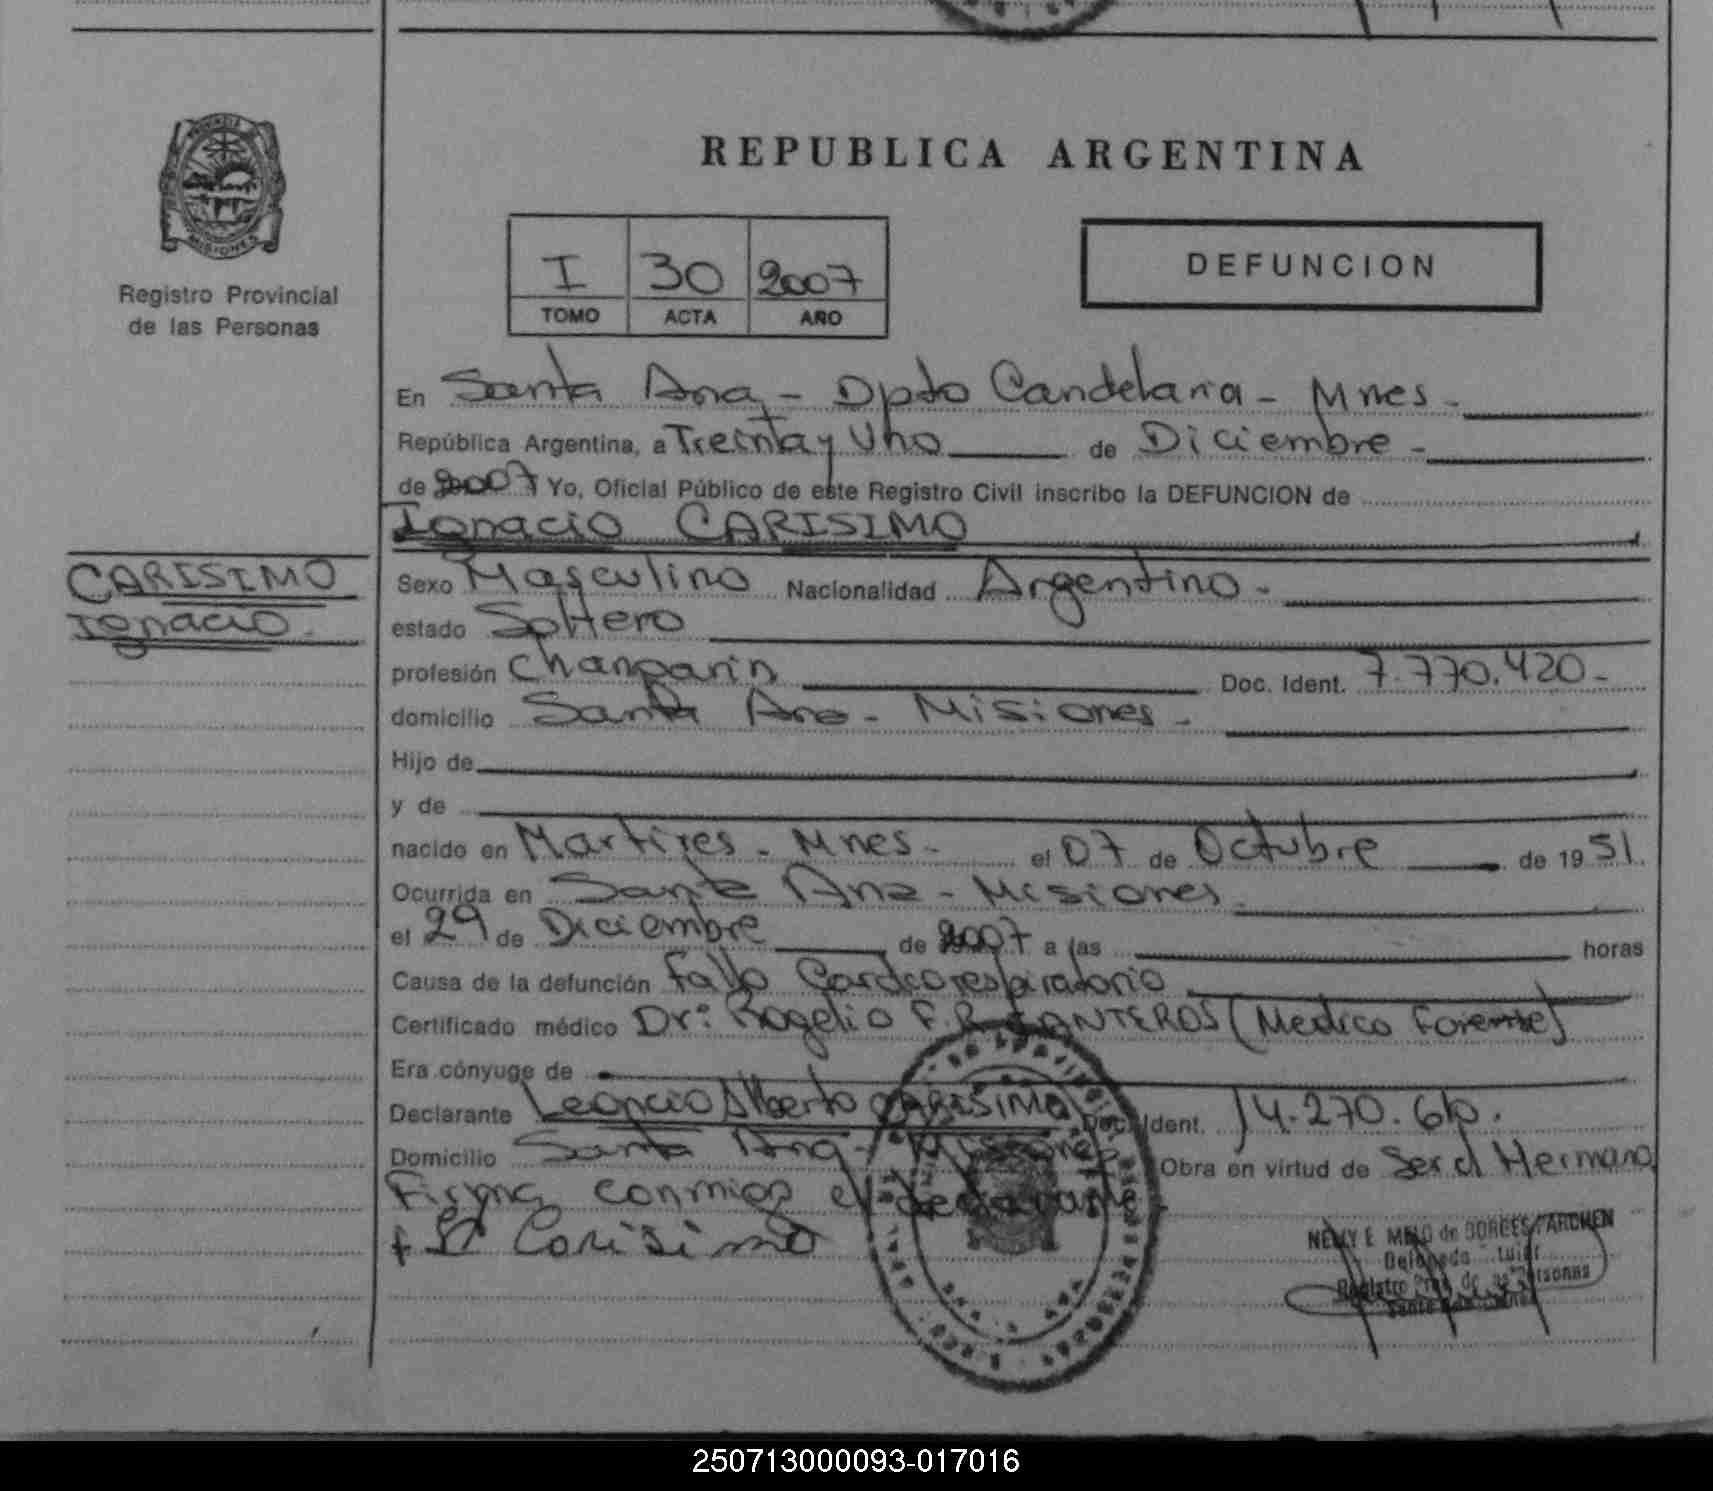 REPUBLICA ARGENTINA
PROVINCIA DE
MISIONES
Registro Provincial
de las Personas
I 30 2007
TOMO ACTA AÑO
DEFUNCION
En Santa Ana - Dpto Candelaria - Mnes -
República Argentina, a Treinta y Uno de Diciembre -
de 2007 Yo, Oficial Público de este Registro Civil inscribo la DEFUNCION de
Ignacio CARISIMO
CARISIMO
Ignacio.
Sexo Masculino Nacionalidad Argentino -
estado Soltero
profesión Changarin Doc. Ident. 7.770.420-
domicilio Santa Ana - Misiones -
Hijo de
y de
nacido en Martires - Mnes - el 07 de Octubre de 1951
Ocurrida en Santa Ana - Misiones
el 29 de Diciembre de 2007 a las horas
Causa de la defunción Fallo Cardiorespiratorio
Certificado médico Dr: Rogelio F.R. CANTEROS (Medico Forense)
Era cónyuge de
Declarante Leoncio Alberto CARISIMO Doc. Ident. 14.270.610.
Domicilio Santa Ana - Misiones Obra en virtud de Ser el Hermano
Firma conmigo el declarante
Carisimo
NELLY E. MELO de
Registro Prov. de las Personas
250713000093-017016